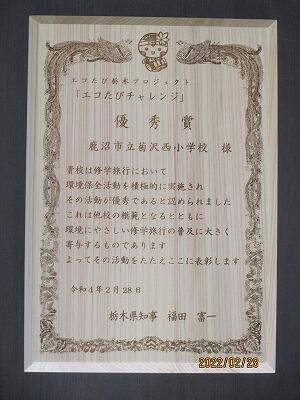 エコたび栃木プロジェクト
「エコたびチャレンジ」
優秀賞
鹿沼市立菊沢西小学校 様
貴校は修学旅行において
環境保全活動を積極的に実施され
その活動が優秀であると認められました
これは他校の模範となるとともに
環境にやさしい修学旅行の普及に大きく
寄与するものであります
よってその活動をたたえここに表彰します
令和4年2月28日
栃木県知事 福田 富一
2022/02/28